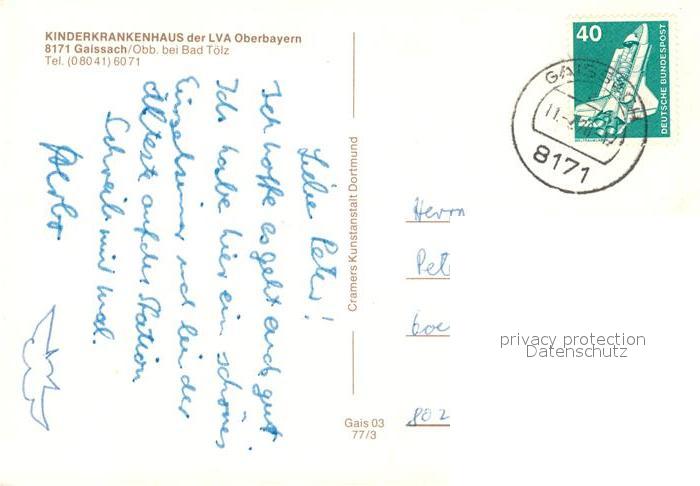 KINDERKRANKENHAUS der LVA Oberbayern
8171 Gaissach/Obb. bei Bad Tölz
Tel. (0 80 41) 60 71
Liebe Peter!
Ich hoffe es geht euch gut
Ich habe hier ein schönes
Einzelzimmer und bin der
Älteste auf der Station
Schreib mir mal.
Cramers Kunstanstalt Dortmund
Gais 03
77/3
40
DEUTSCHE BUNDESPOST
8171
Herrn
Pet
802
privacy protection
Datenschutz